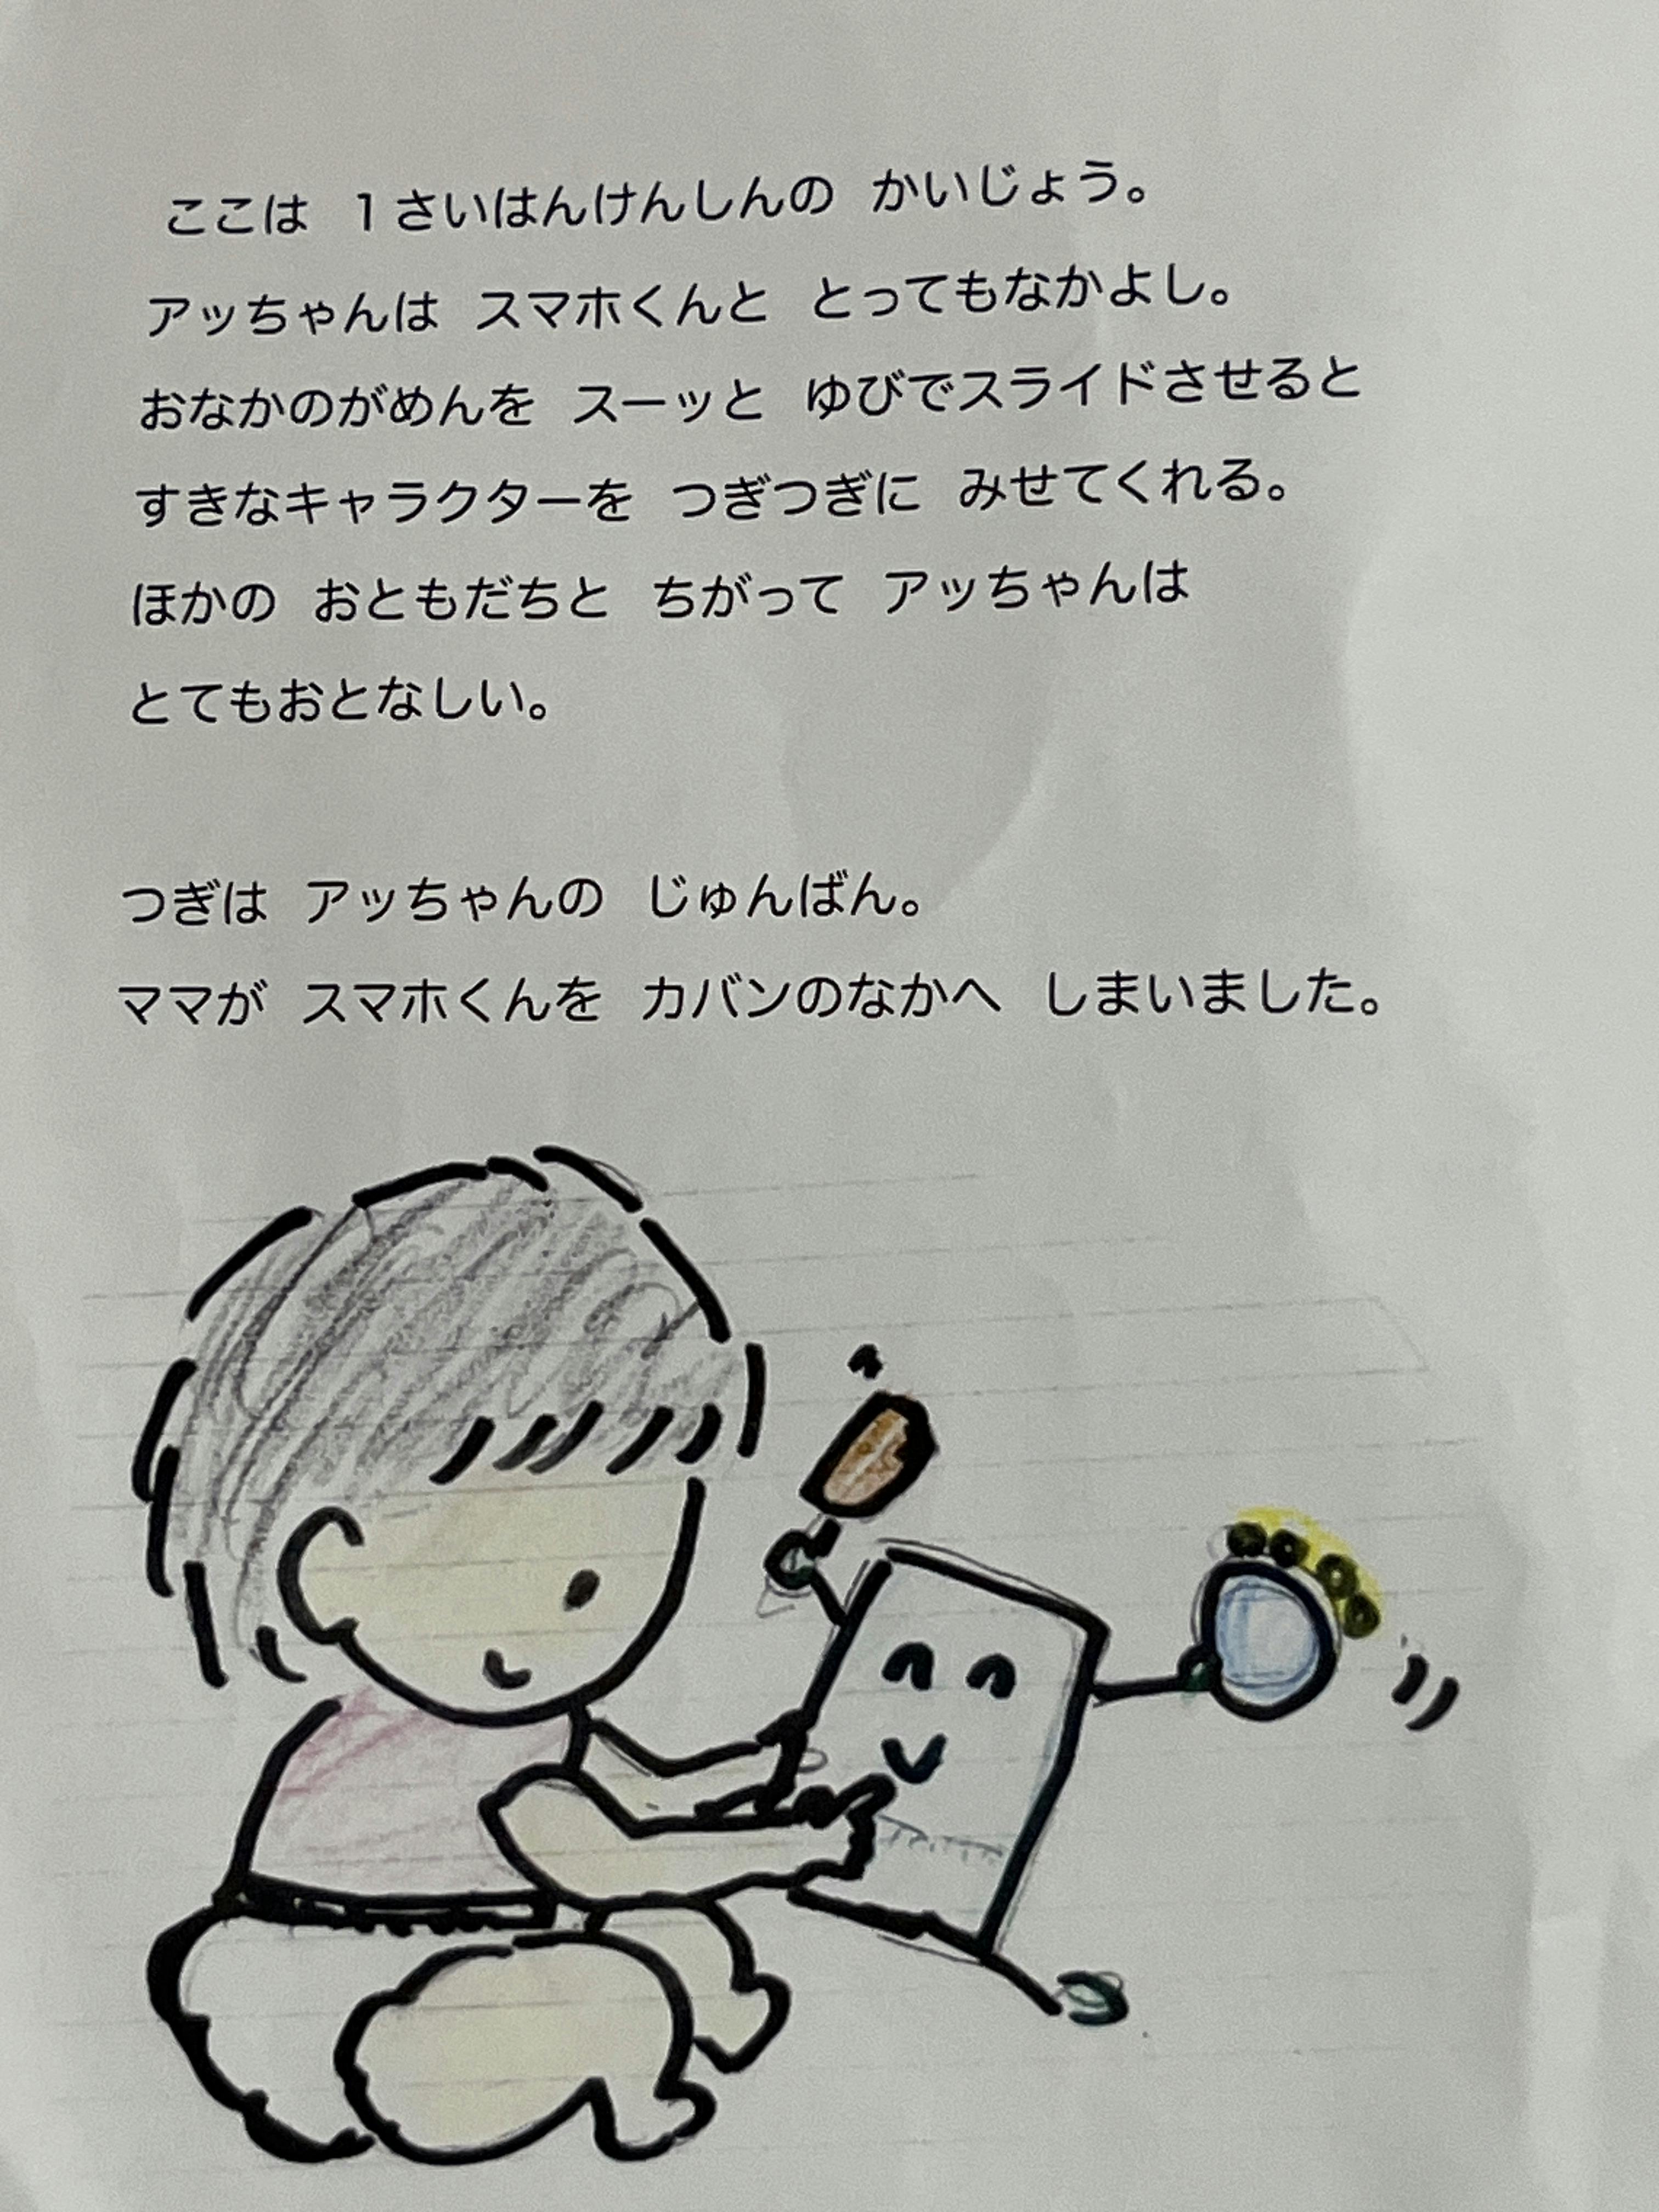 ここは １さいはんけんしんの かいじょう。
アッちゃんは スマホくんと とってもなかよし。
おなかのがめんを スーッと ゆびでスライドさせると
すきなキャラクターを つぎつぎに みせてくれる。
ほかの おともだちと ちがって アッちゃんは
とてもおとなしい。
つぎは アッちゃんの じゅんばん。
ママが スマホくんを カバンのなかへ しまいました。